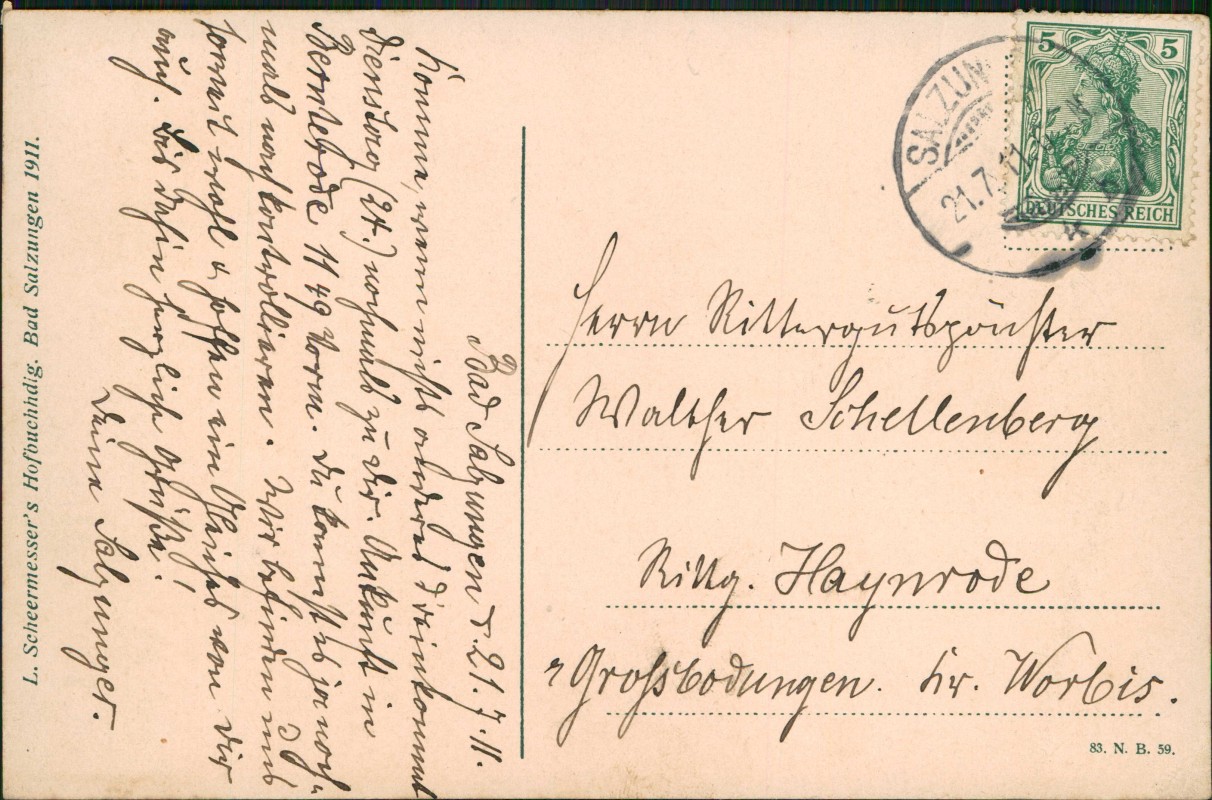 Bad Salzungen d. 21.7.11.
Komme, wenn nichts anderes dreinkommt
Dienstag (24.) nochmals zu Dir. Ankunft in
Bernterode 11 49 Vorm. Du kannst es ja noch-
mals nachkontrollieren. Wir befinden uns
soweit wohl & hoffen ein Gleiches von Dir
auch. Bis dahin herzliche Grüße!
Deine Salzunger.
L. Scheermesser's Hofbuchhdlg. Bad Salzungen 1911.
SALZUN
21.7.11.
5 5
DEUTSCHES REICH
Herrn Rittergutspächter
Walther Schellenberg
Rittg. Haynrode
Grossbodungen. Kr. Worbis.
83. N. B. 59.